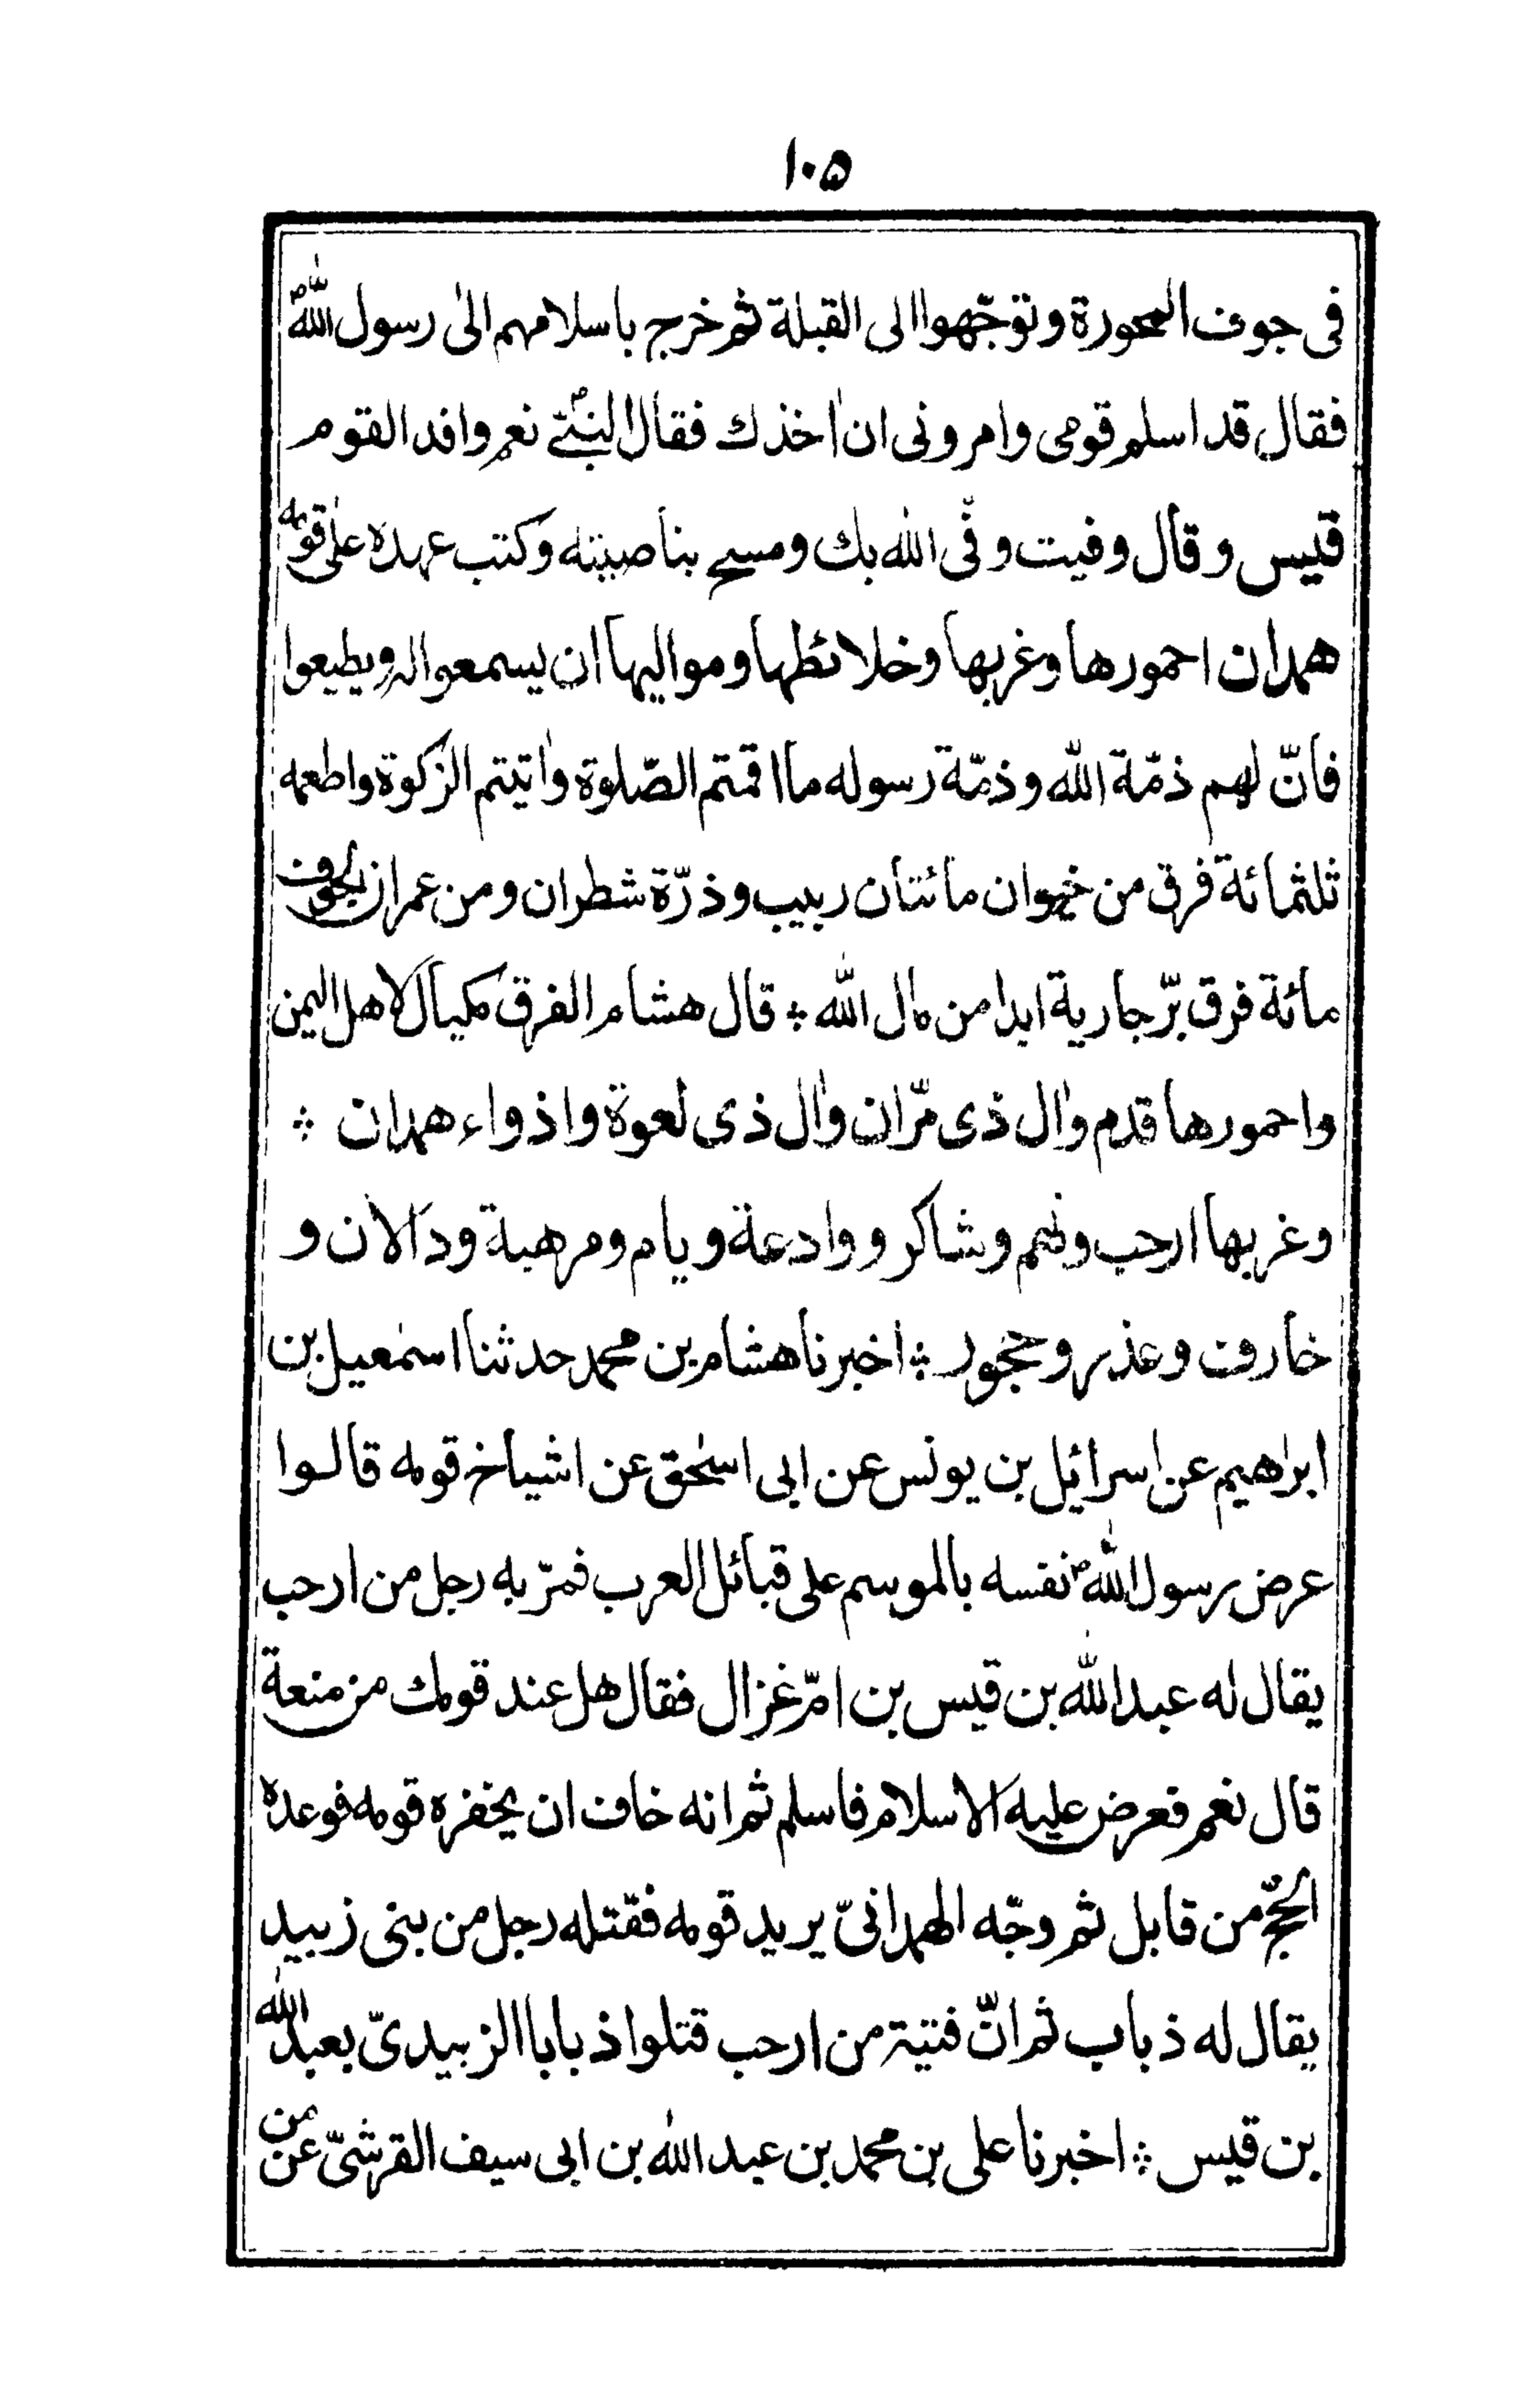 ١٠٥
فى جوف المحورة وتوجّهوا الى القبلة ثم خرج باسلامهم الىٰ رسول اللهؐ
فقال قد اسلم قومى وامرونى ان اٰخذك فقال النبىؐ نعم وافد القوم
قيس وقال وفيت وفّى الله بك ومسح بناصيته وكتب عهده علىٰ قومه
همدان احمورها وغربها وخلائطها ومواليها ان يسمعوا له ويطيعوا
فانّ لهم ذمّة اللّٰه وذمّة رسوله ما اقمتم الصّلوة واٰتيتم الزكوة واطعمه
ثلثمائة فرق من خيوان مائتان ربيب وذرّة شطران ومن عمران الجوف
مائة فرق برّ جارية ابدا من مال اللّٰه ⁘ قال هشام الفرق مكيال لاهل اليمن
واحمورها قدم واٰل ذى مرّان واٰل ذى لعوة واذواء همدان ⁘
وغربها ارحب ونهم وشاكر ووادعة ويام ومرهبة ودالان و
خارف وعذر وحجور ⁘ اخبرنا هشام بن محمد حدثنا اسمٰعيل بن
ابرٰهيم عن اسرائيل بن يونس عن ابى اسحٰق عن اشياخ قومه قالوا
عرض رسول اللّٰهؐ نفسه بالموسم على قبائل العرب فمرّ به رجل من ارحب
يقال له عبد اللّٰه بن قيس بن امّ غزال فقال هل عند قومك من منعة
قال نعم فعرض عليه الاسلام فاسلم ثم انه خاف ان يخفره قومه فوعده
الحجّ من قابل ثم وجّه الهمدانىّ يريد قومه فقتله رجل من بنى زبيد
يقال له ذباب ثم انّ فتية من ارحب قتلوا ذبابا الزبيدىّ بعبد اللّٰه
بن قيس ⁘ اخبرنا على بن محمد بن عبد اللّٰه بن ابى سيف القرشىّ عن من